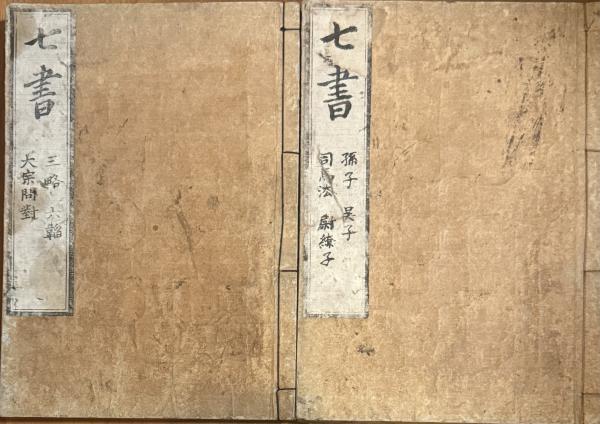 七書
孫子 吴子
司馬法 尉繚子
七書
三略 六韜
大宗問對